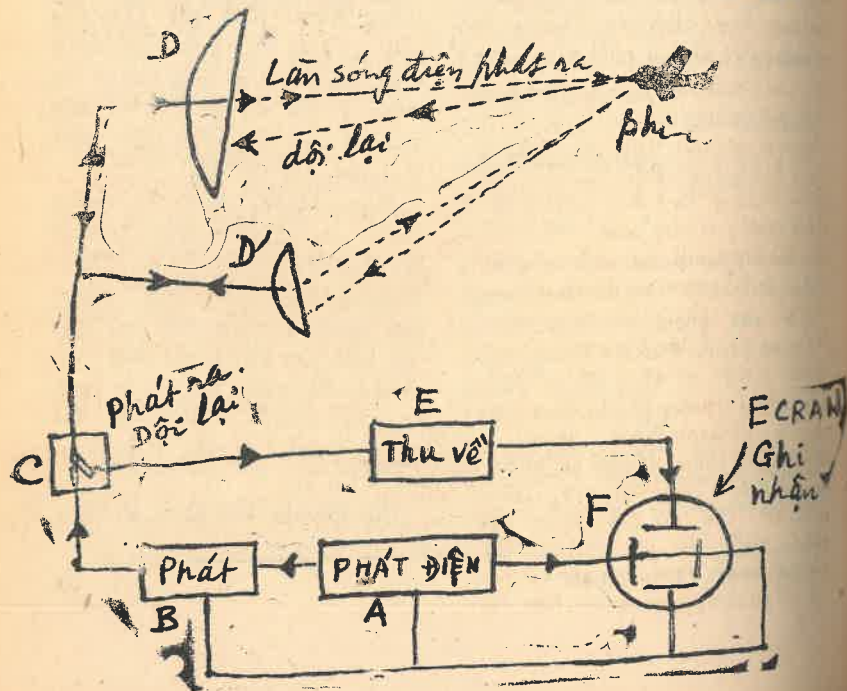 D
Làn sóng điện phát ra
dội lại
phi
D'
Phát ra.
Dội lại
C
E
Thu về
ECRAN
Ghi
nhận
F
Phát
B
PHÁT ĐIỆN
A